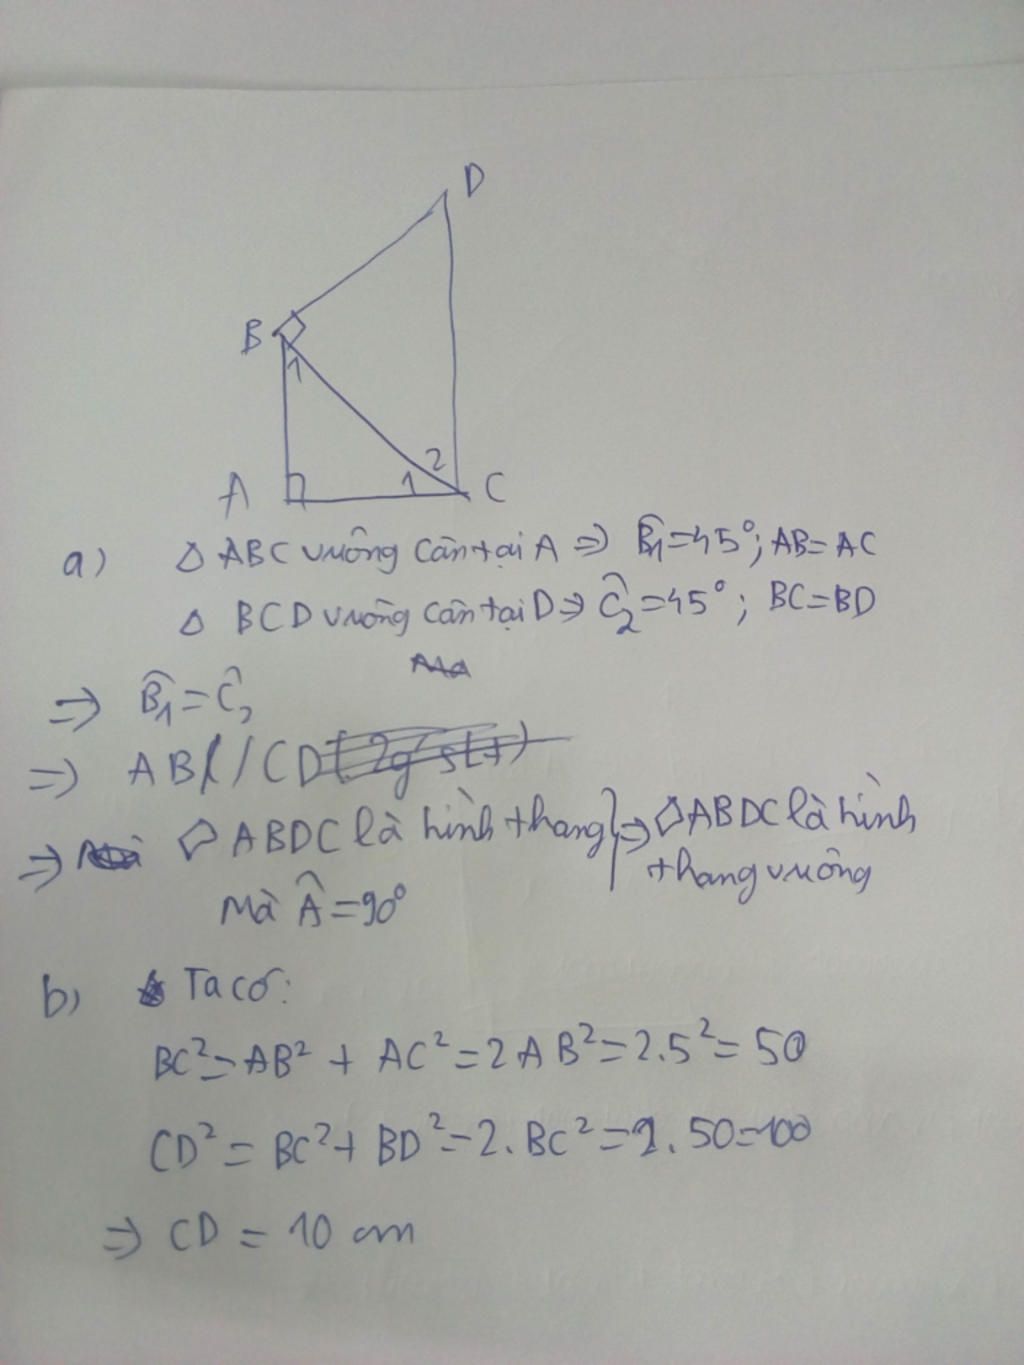 D
B
1
2
A
1
C
a) Δ ABC vuông cân tại A => B̂1 = 45°; AB = AC
Δ BCD vuông cân tại D => Ĉ2 = 45°; BC = BD
=> B̂1 = Ĉ2
=> AB // CD
=> ABDC là hình thang } => ABDC là hình
thang vuông
Mà Â = 90°
b) Ta có:
BC² = AB² + AC² = 2AB² = 2.5² = 50
CD² = BC² + BD² = 2.BC² = 2.50 = 100
=> CD = 10 cm